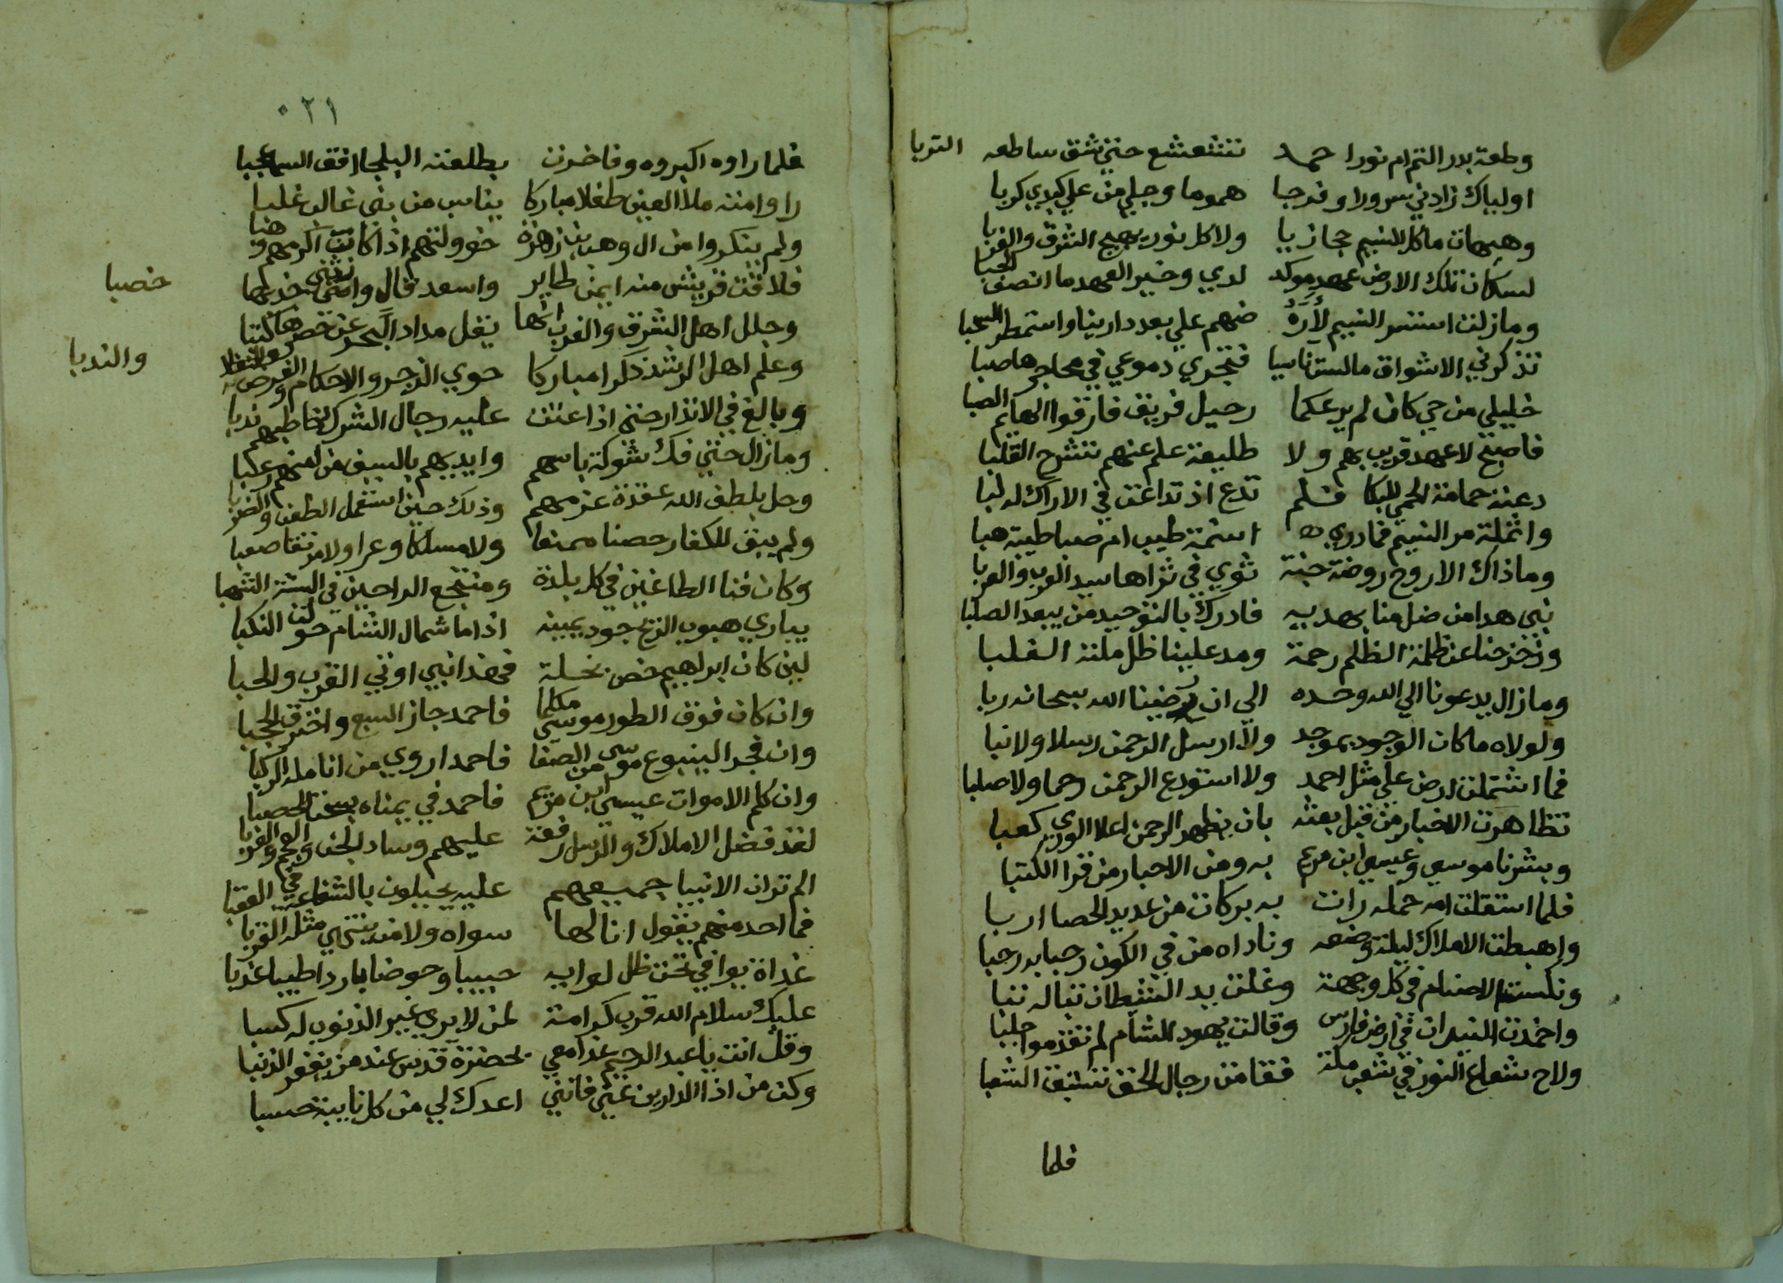 وطعة بدر التم ام نور احمد تشعشع حتى شق ساطعه التربا
اولياك زادني سرورا وفرجا هموما وجلي من علي كبدي كربا
وهيهات ما كل النسيم حجازيا ولا كل نور يبهج الشرق والغربا
لسكان تلك الارض عهد موكد لدي وخير العهد ما انصف الحبا
وما زلت استنشر النسيم لارة منهم علي بعد داريا واستمطر السحبا
تذكرني الاشواق مالست ناسيا فتجري دموعي في محاجرها صبا
خليلي من حي كان لم يرعكما رحيل فريق فارقوا الهايم الصبا
فاصبح لا عهد قريب بهم ولا طليعة علم عنهم تشرح القلبا
دعته حمامة الحمي للبكا فلم تدع اذ تداعت في الاراك له لبا
واثملة مر النسيم فما دري استمة طيب ام صبا طيبة هبا
وما ذاك الا روح روضة جنة ثوي في ثراها سيد العرب والعربا
نبى هدا من ضل منا بهديه فادرك بالتوحيد من يعبد الصلبا
وزحزحنا عن ظلمة الظلم رحمة ومد علينا ظل ملته الغلبا
وما زال يدعونا الي الله وحده الي ان رضينا الله سبحانه ربا
ولولاه ما كان الوجود بموجد ولا ارسل الرحمن رسلا ولا نبا
فما اشتملت ارض علي مثل احمد ولا استودع الرحمن رحما ولا صلبا
تظاهرت الاخبار من قبل بعثه بان يظهر الرحمن اعلا الوري كعبا
وبشرنا موسي وعيسي ابن مريم به ومن الاحبار من قرا الكتبا
فلما استقلت امه حمله رات به بركات من عديد الحصا اربا
واهبطت الاملاك ليلة وضعه وناداه من في الكون رحبا به رحبا
ونكست الاصنام في كل وجهة وغلت يد الشيطان تبا له تبا
واخمدت النيران في ارض فارس وقالت يهود الشام لم نقدموا جلبا
ولاح شعاع النور في شعب مكة فقامت رجال الحق تستبق الشعبا
فلما
٠٢١
فلما راوه اكبروه وفاخرت بطلعته البلجا افق السما عجبا
راوا منه ملا العين طفلا مباركا يناسب من بني غالب غلبا
ولم ينكروا من ال وهب بن زهرة خوولتهم اذ كانت اكرمهم وهبا
فلاقت قريش منه ايمن طاير واسعد فال وامتلي بغيتي خدبها خصبا
وجلل اهل الشرق والغرب انها يقل مداد البحر عن حصرها كتبا
وعلم اهل الرشد ذكرا مباركا حوي الزجر والاحكام والفرض والندبا
وبالغ في الانذار حتى اذا عتت عليه رجال الشرك خاطبهم ندبا
وما زال حتى فك شوكة باسهم وايديهم بالسيف من امنهم رعبا
وحل بلطف الله عقدة عزمهم وذلك حين استعمل الطعن والضربا
ولم يبق للكفار حصنا ممنعا ولا مسلكا وعرا ولا مرتقا صعبا
وكان فنا الطاغين في كل بلدة ومنتجع الراجين في السنة الشهبا
يباري هبوب الريح جود يمينه اذا ما شمال الشام حولت النكبا
لين كان ابراهيم خص بخلة فهذا نبي اوتي القرب والحبا
وان كان فوق الطور موسي مكلما فاحمد جاز السبع واخترق الحجبا
وان فجر الينبوع موسى من الصفا فاحمد اروي من انامله الركبا
وان كلم الاموات عيسي ابن مريم فاحمد في يمناه سبحت الحصبا
لقد فضل الاملاك والرسل رفعة عليهم وساد الجن والعجم والعربا
الم تر ان الانبيا جميعهم عليه يحيلون بالشفاعة في العقبا
فما احد منهم يقول انا لها سواه ولا من ينتهي مثله القربا
غداة يوافي تحت ظل لوايه حبيبا وحوضا باردا طيبا عذبا
عليك سلام الله قرب كرامة لمن لا يري غير الذنوب له كسبا
وقل انت يا عبد الرحيم غدا معي بحضرة قدس عند من يغفر الذنبا
وكن من اذا الدارين غثى فانني اعدك لي من كل نايبة حسبا